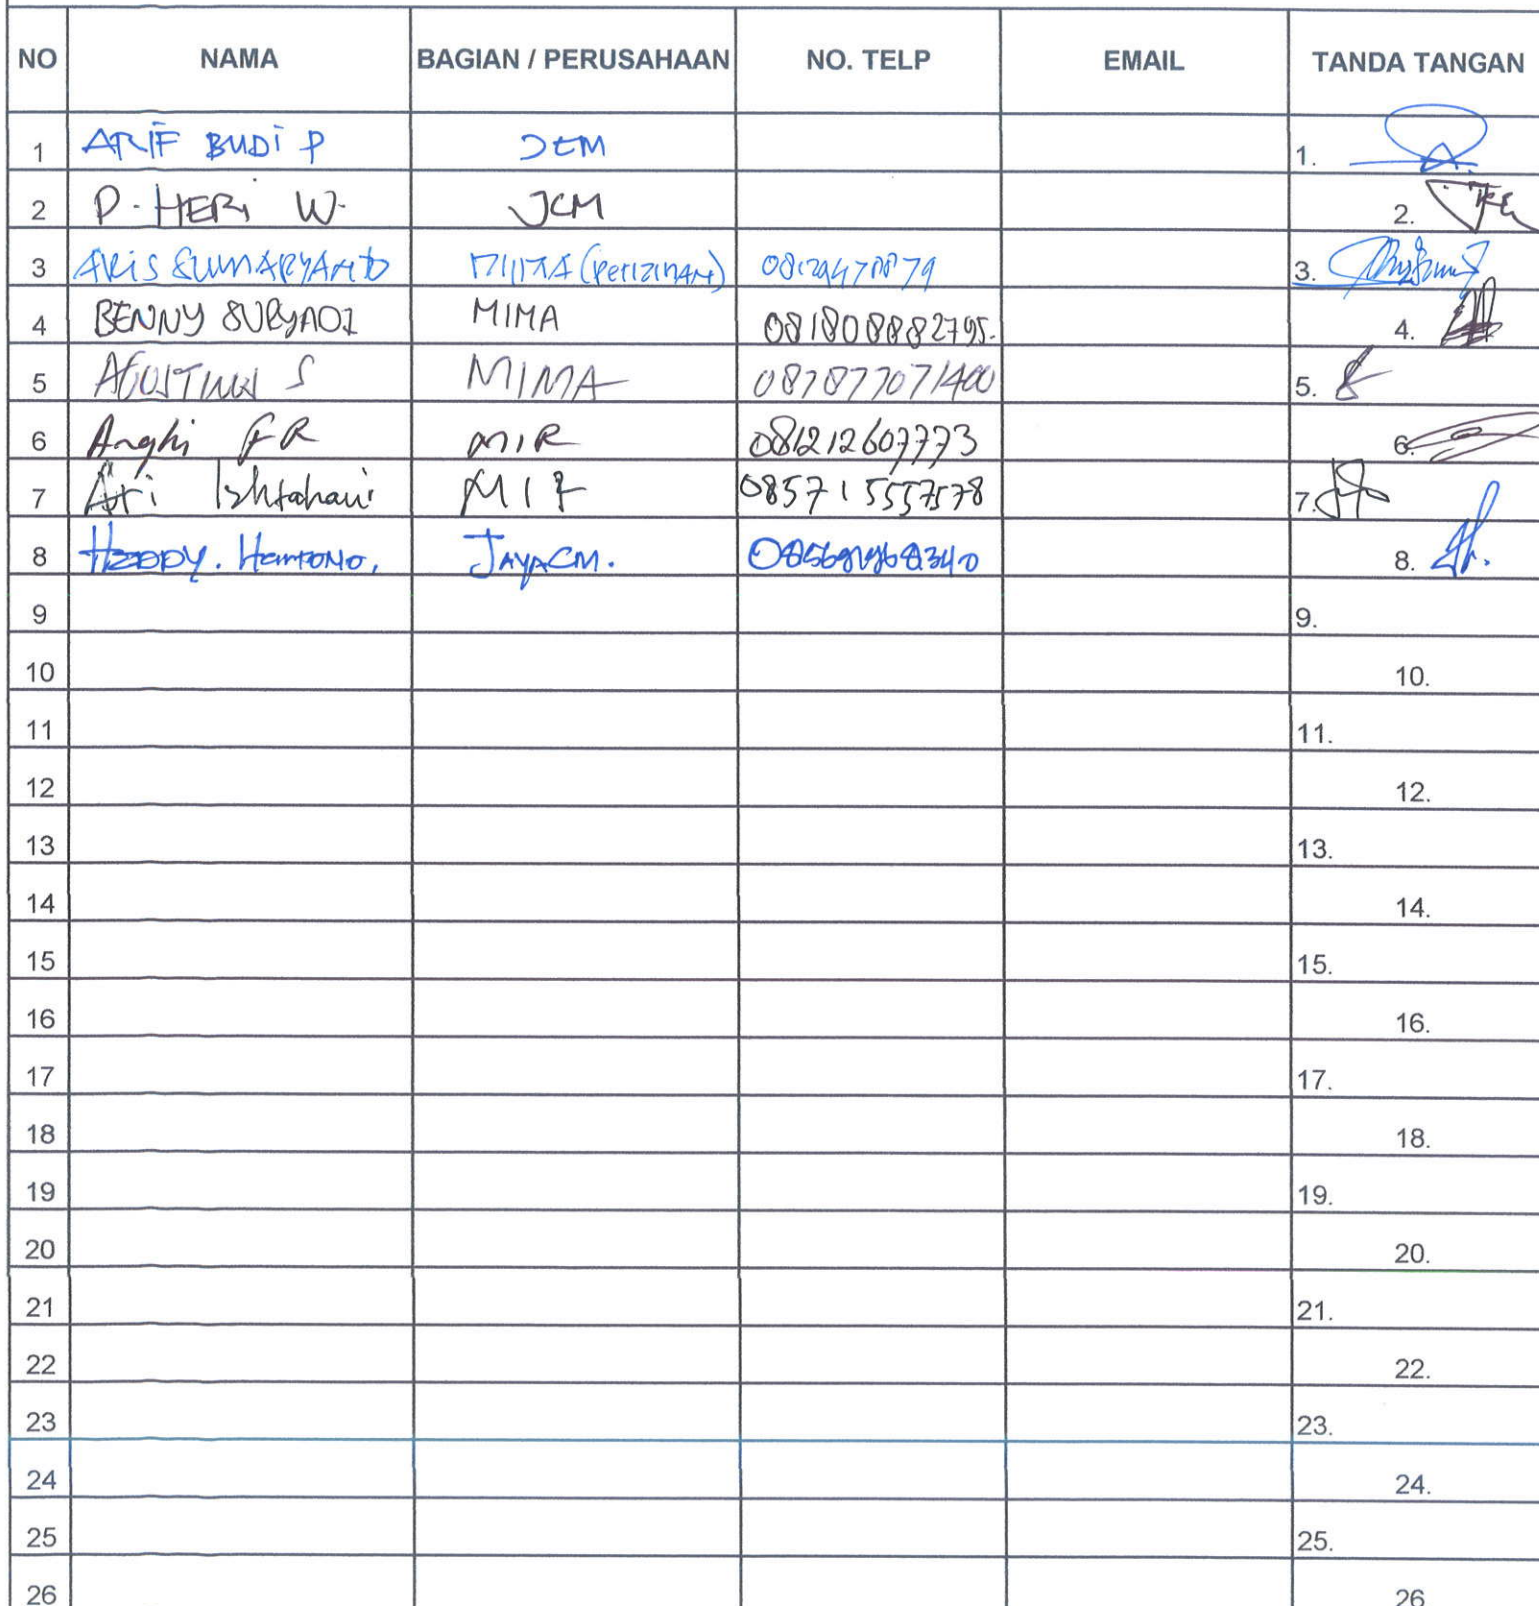 NO NAMA BAGIAN / PERUSAHAAN NO. TELP EMAIL TANDA TANGAN
1 ARIF BUDI P JCM 1.
2 P. HERI W. JCM 2.
3 ARIS SUMARYANTO MIMA (Perizinan) 3.
4 BENNY SURYADI MIMA 081808882795. 4.
5 AGUSTINUS S MIMA 087877071400 5.
6 Anghi FR MIR 081212607773 6.
7 Ari Ishtahari 7.
8 HEDDY. HARTONO. JAYACM. 8.
9 9.
10 10.
11 11.
12 12.
13 13.
14 14.
15 15.
16 16.
17 17.
18 18.
19 19.
20 20.
21 21.
22 22.
23 23.
24 24.
25 25.
26 26